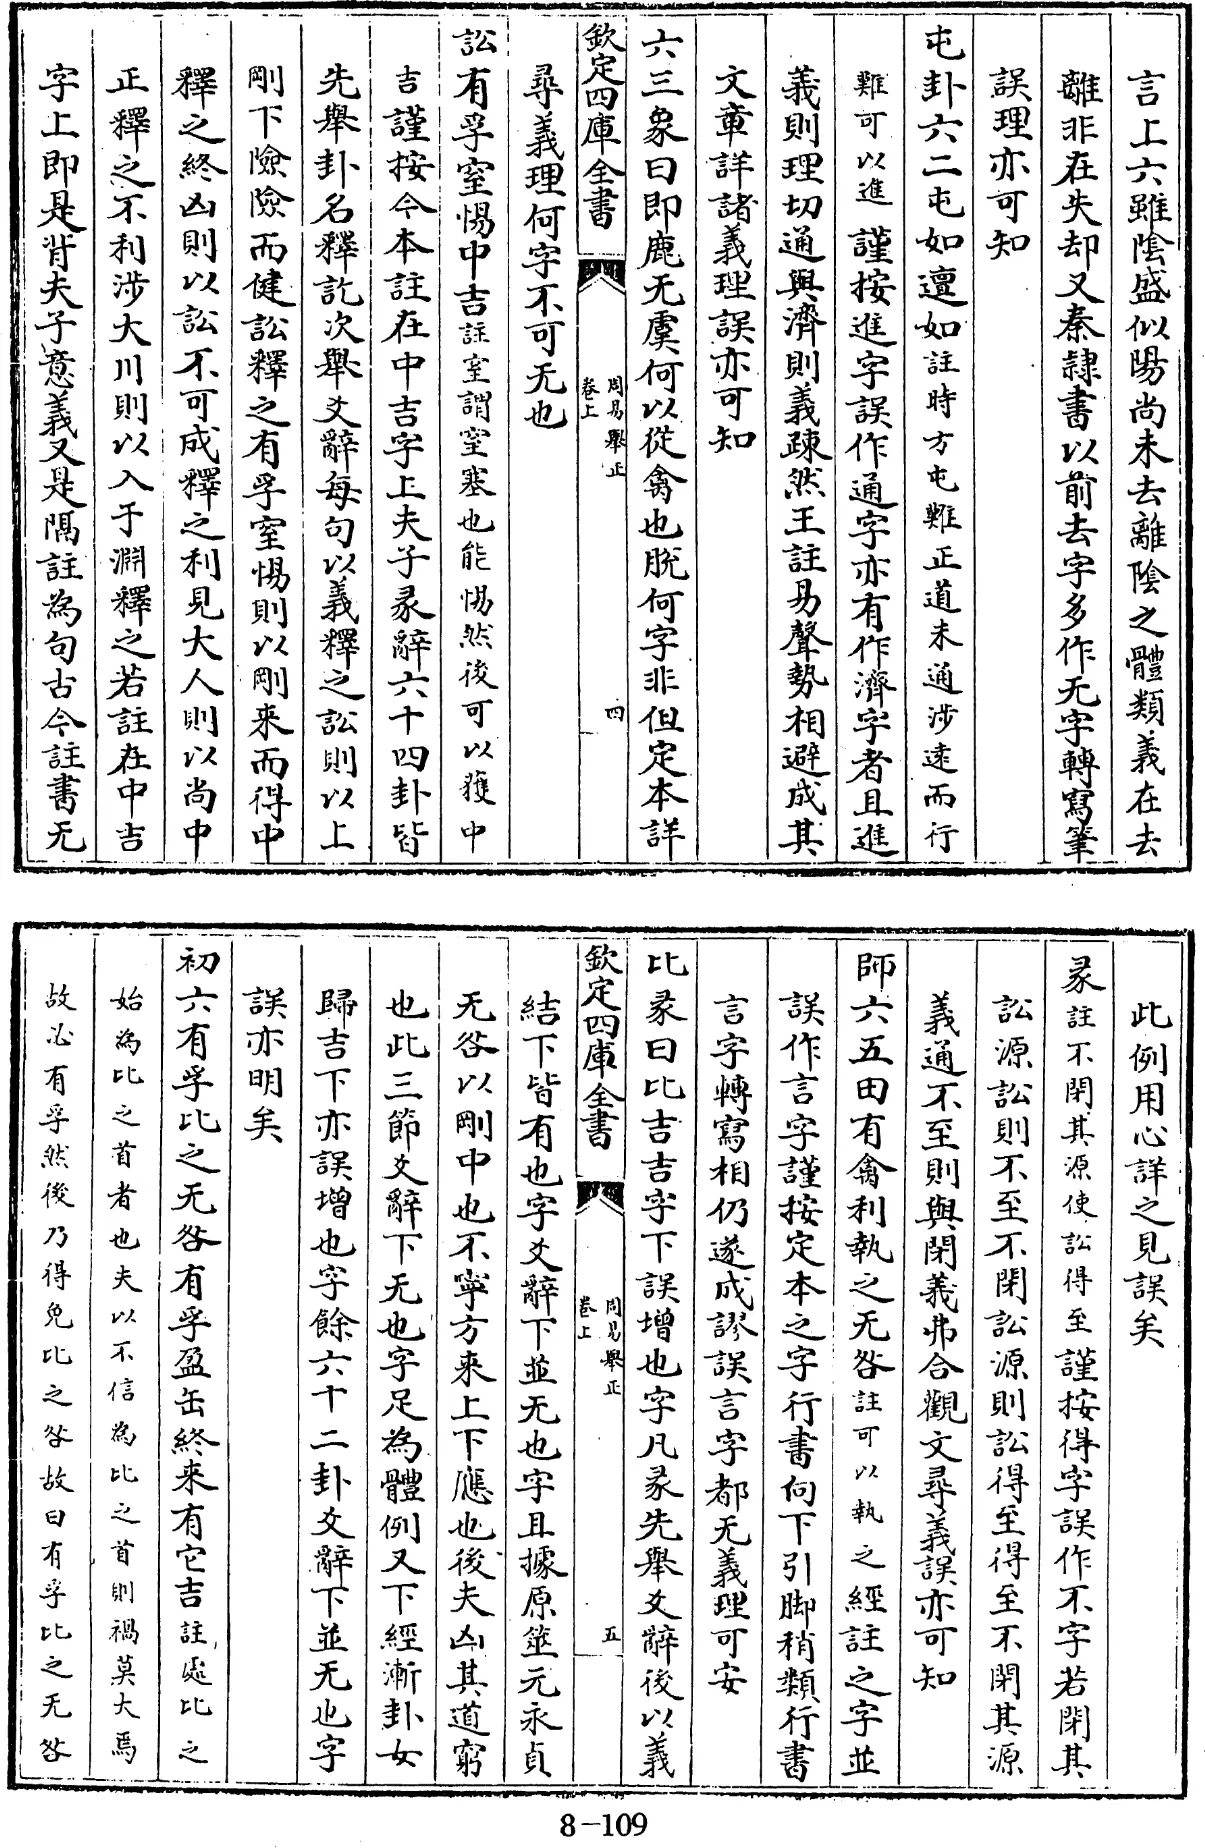 言上六雖陰盛似陽尚未去離陰之體類義在去
離非在失却又秦隸書以前去字多作无字轉寫筆
誤理亦可知
屯卦六二屯如邅如註時方屯難正道未通涉遠而行
難可以進謹按進字誤作通字亦有作濟字者且進
義則理切通與濟則義疎然王註易聲勢相避成其
文章詳諸義理誤亦可知
六三象曰即鹿无虞何以從禽也脱何字非但定本詳
欽定四庫全書
周易舉正
卷上
四
尋義理何字不可无也
訟有孚窒惕中吉註窒謂窒塞也能惕然後可以獲中
吉謹按今本註在中吉字上夫子彖辭六十四卦皆
先舉卦名釋訖次舉爻辭每句以義釋之訟則以上
剛下險險而健訟釋之有孚窒惕則以剛來而得中
釋之終凶則以訟不可成釋之利見大人則以尚中
正釋之不利涉大川則以入于淵釋之若註在中吉
字上即是背夫子意義又是隔註為句古今註書无
此例用心詳之見誤矣
彖註不閉其源使訟得至謹按得字誤作不字若閉其
訟源訟則不至不閉訟源則訟得至得至不閉其源
義通不至則與閉義弗合觀文尋義誤亦可知
師六五田有禽利執之无咎註可以執之經註之字並
誤作言字謹按定本之字行書向下引脚稍類行書
言字轉寫相仍遂成謬誤言字都无義理可安
比彖曰比吉吉字下誤增也字凡彖先舉爻辭後以義
欽定四庫全書
周易舉正
卷上
五
結下皆有也字爻辭下並无也字且據原筮元永貞
无咎以剛中也不寧方來上下應也後夫凶其道窮
也此三節爻辭下无也字足為體例又下經漸卦女
歸吉下亦誤增也字餘六十二卦爻辭下並无也字
誤亦明矣
初六有孚比之无咎有孚盈缶終來有它吉註處比之
始為比之首者也夫以不信為比之首則禍莫大焉
故必有孚然後乃得免比之咎故曰有孚比之无咎
8-109